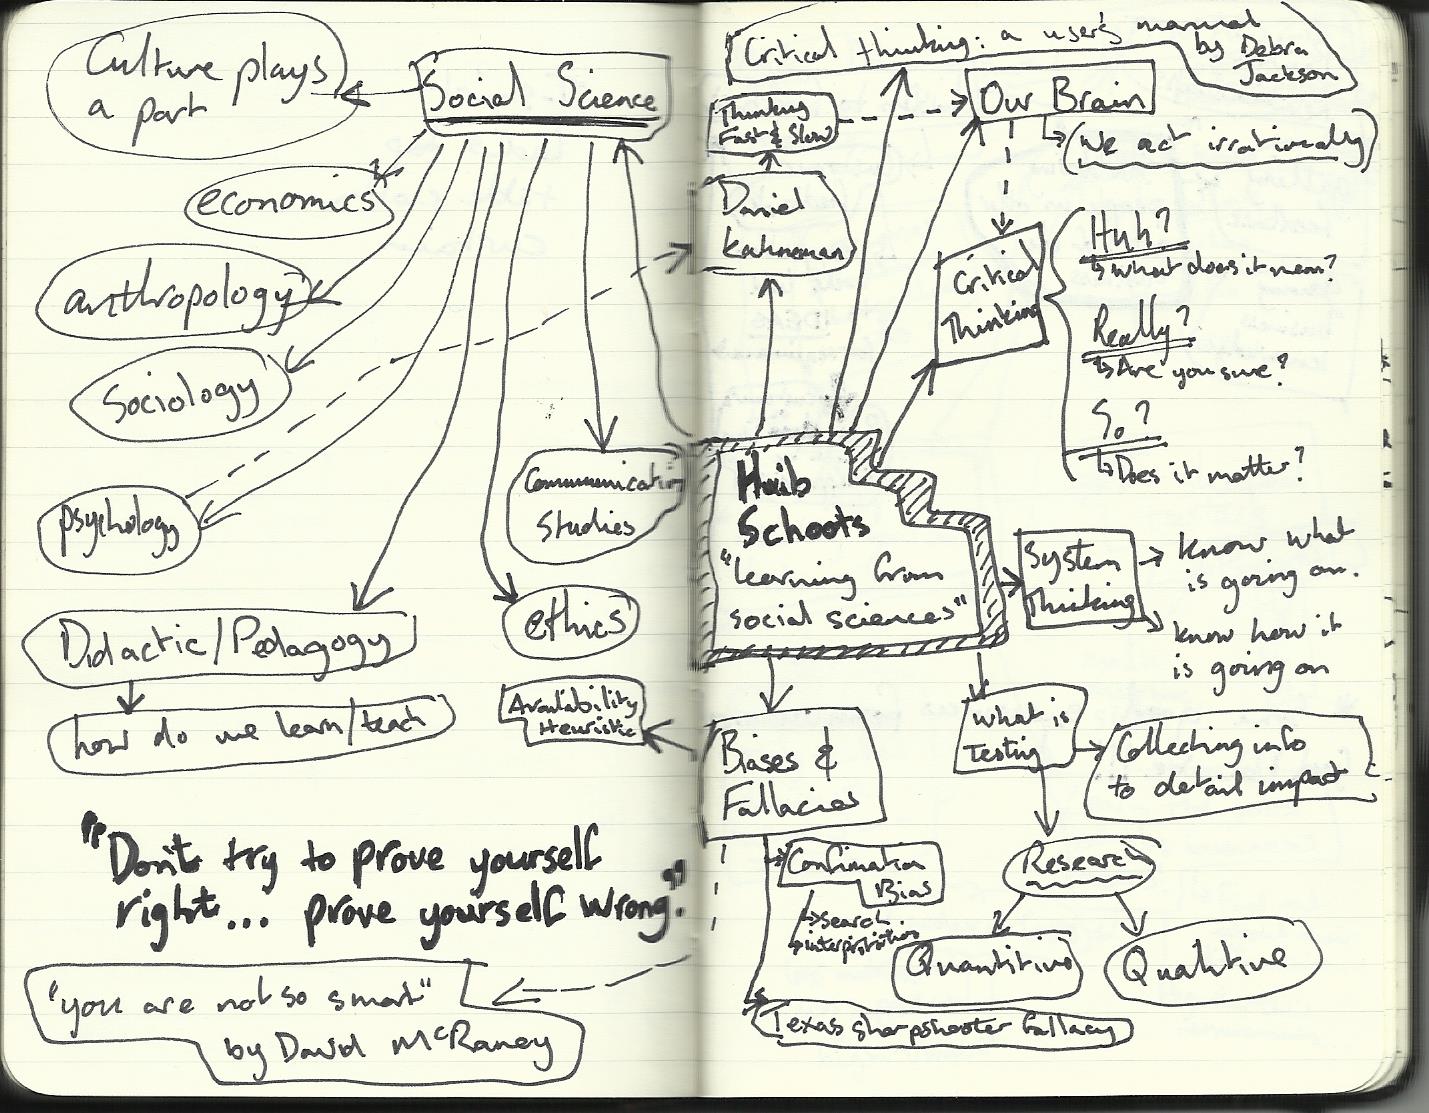 Culture plays
a part
Social Science
economics
anthropology
Sociology
psychology
Communication
Studies
ethics
Didactic/Pedagogy
how do we learn/teach
Availability
Heuristic
"Don't try to prove yourself
right... prove yourself wrong."
"you are not so smart"
by David McRaney
Critical thinking: a user's manual
by Debra
Jackson
Thinking
Fast & Slow
Our Brain
(We act irrationally)
Daniel
Kahneman
Critical
Thinking
Huh?
↳ What does it mean?
Really?
↳ Are you sure?
So?
↳ Does it matter?
Huib
Schoots
"learning from
social sciences"
System
Thinking
know what
is going on.
know how it
is going on
Biases &
Fallacies
What is
Testing
Collecting info
to detail impact
Confimation
Bias
→ search
→ interpritation
Research
Quantitive
Qualitive
Texas sharpshooter fallacy